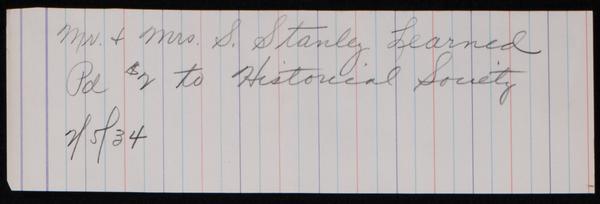 Mr. & Mrs. S. Stanley Learned
Pd $2 to Historical Society
2/5/34